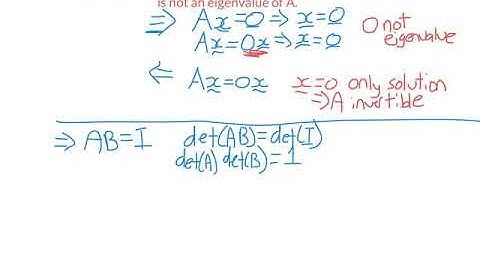 is not an eigenvalue of A.
⇒ Ax=0 ⇒ x=0
Ax=0x ⇒ x=0
0 not
eigenvalue
⇐ Ax=0x
x=0 only solution
⇒ A invertible
⇒ AB=I det(AB)=det(I)
det(A) det(B)=1